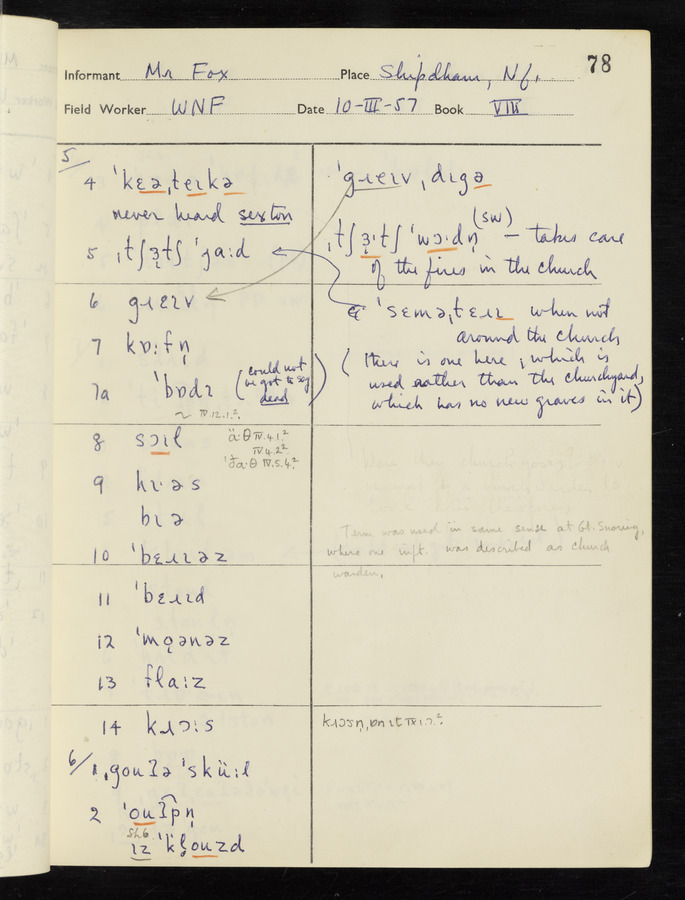 78
Informant Mr Fox Place Shipdham, Nf.
Field Worker WNF Date 10-III-57 Book VIII
5/
4 ˈkɛəˌteɪkə
never heard sexton
ˈgɹeɪvˌdɪgə
5 ˌtʃɜ̣tʃ ˈjaːd
ˌtʃɜ̣ˑtʃ ˈwɔˑdn̩ (sw) – takes care
of the fires in the church
6 gɹeɪv
ˈseməˌtɛɹɪ when not
around the church
7 kɒːfn̩
(there is one here, which is
used rather than the churchyard,
which has no new graves in it)
7a ˈbɒdɪ (could not
be got to say
dead)
~ IV.12.1.²
8 sɔɪl
ä·θ IV.4.1.²
IV.4.2²
ˈðaˑθ IV.5.4.²
9 hɪˑəs
bɪə
Term was used in same sense at Gt. Snoring,
where one inft. was described as church
warden.
10 ˈbɛɹɪəz
11 ˈbɛɹɪd
12 ˈmo̜ənəz
13 flaːz
14 kɹɔːs
kɹɔsn̩, ɒn ɪt IX.1.2.²
6/
1 ˌgouʔə ˈsküːl
2 ˈouʔpn̩
Sh6
ɪz ˈkl̥ouzd